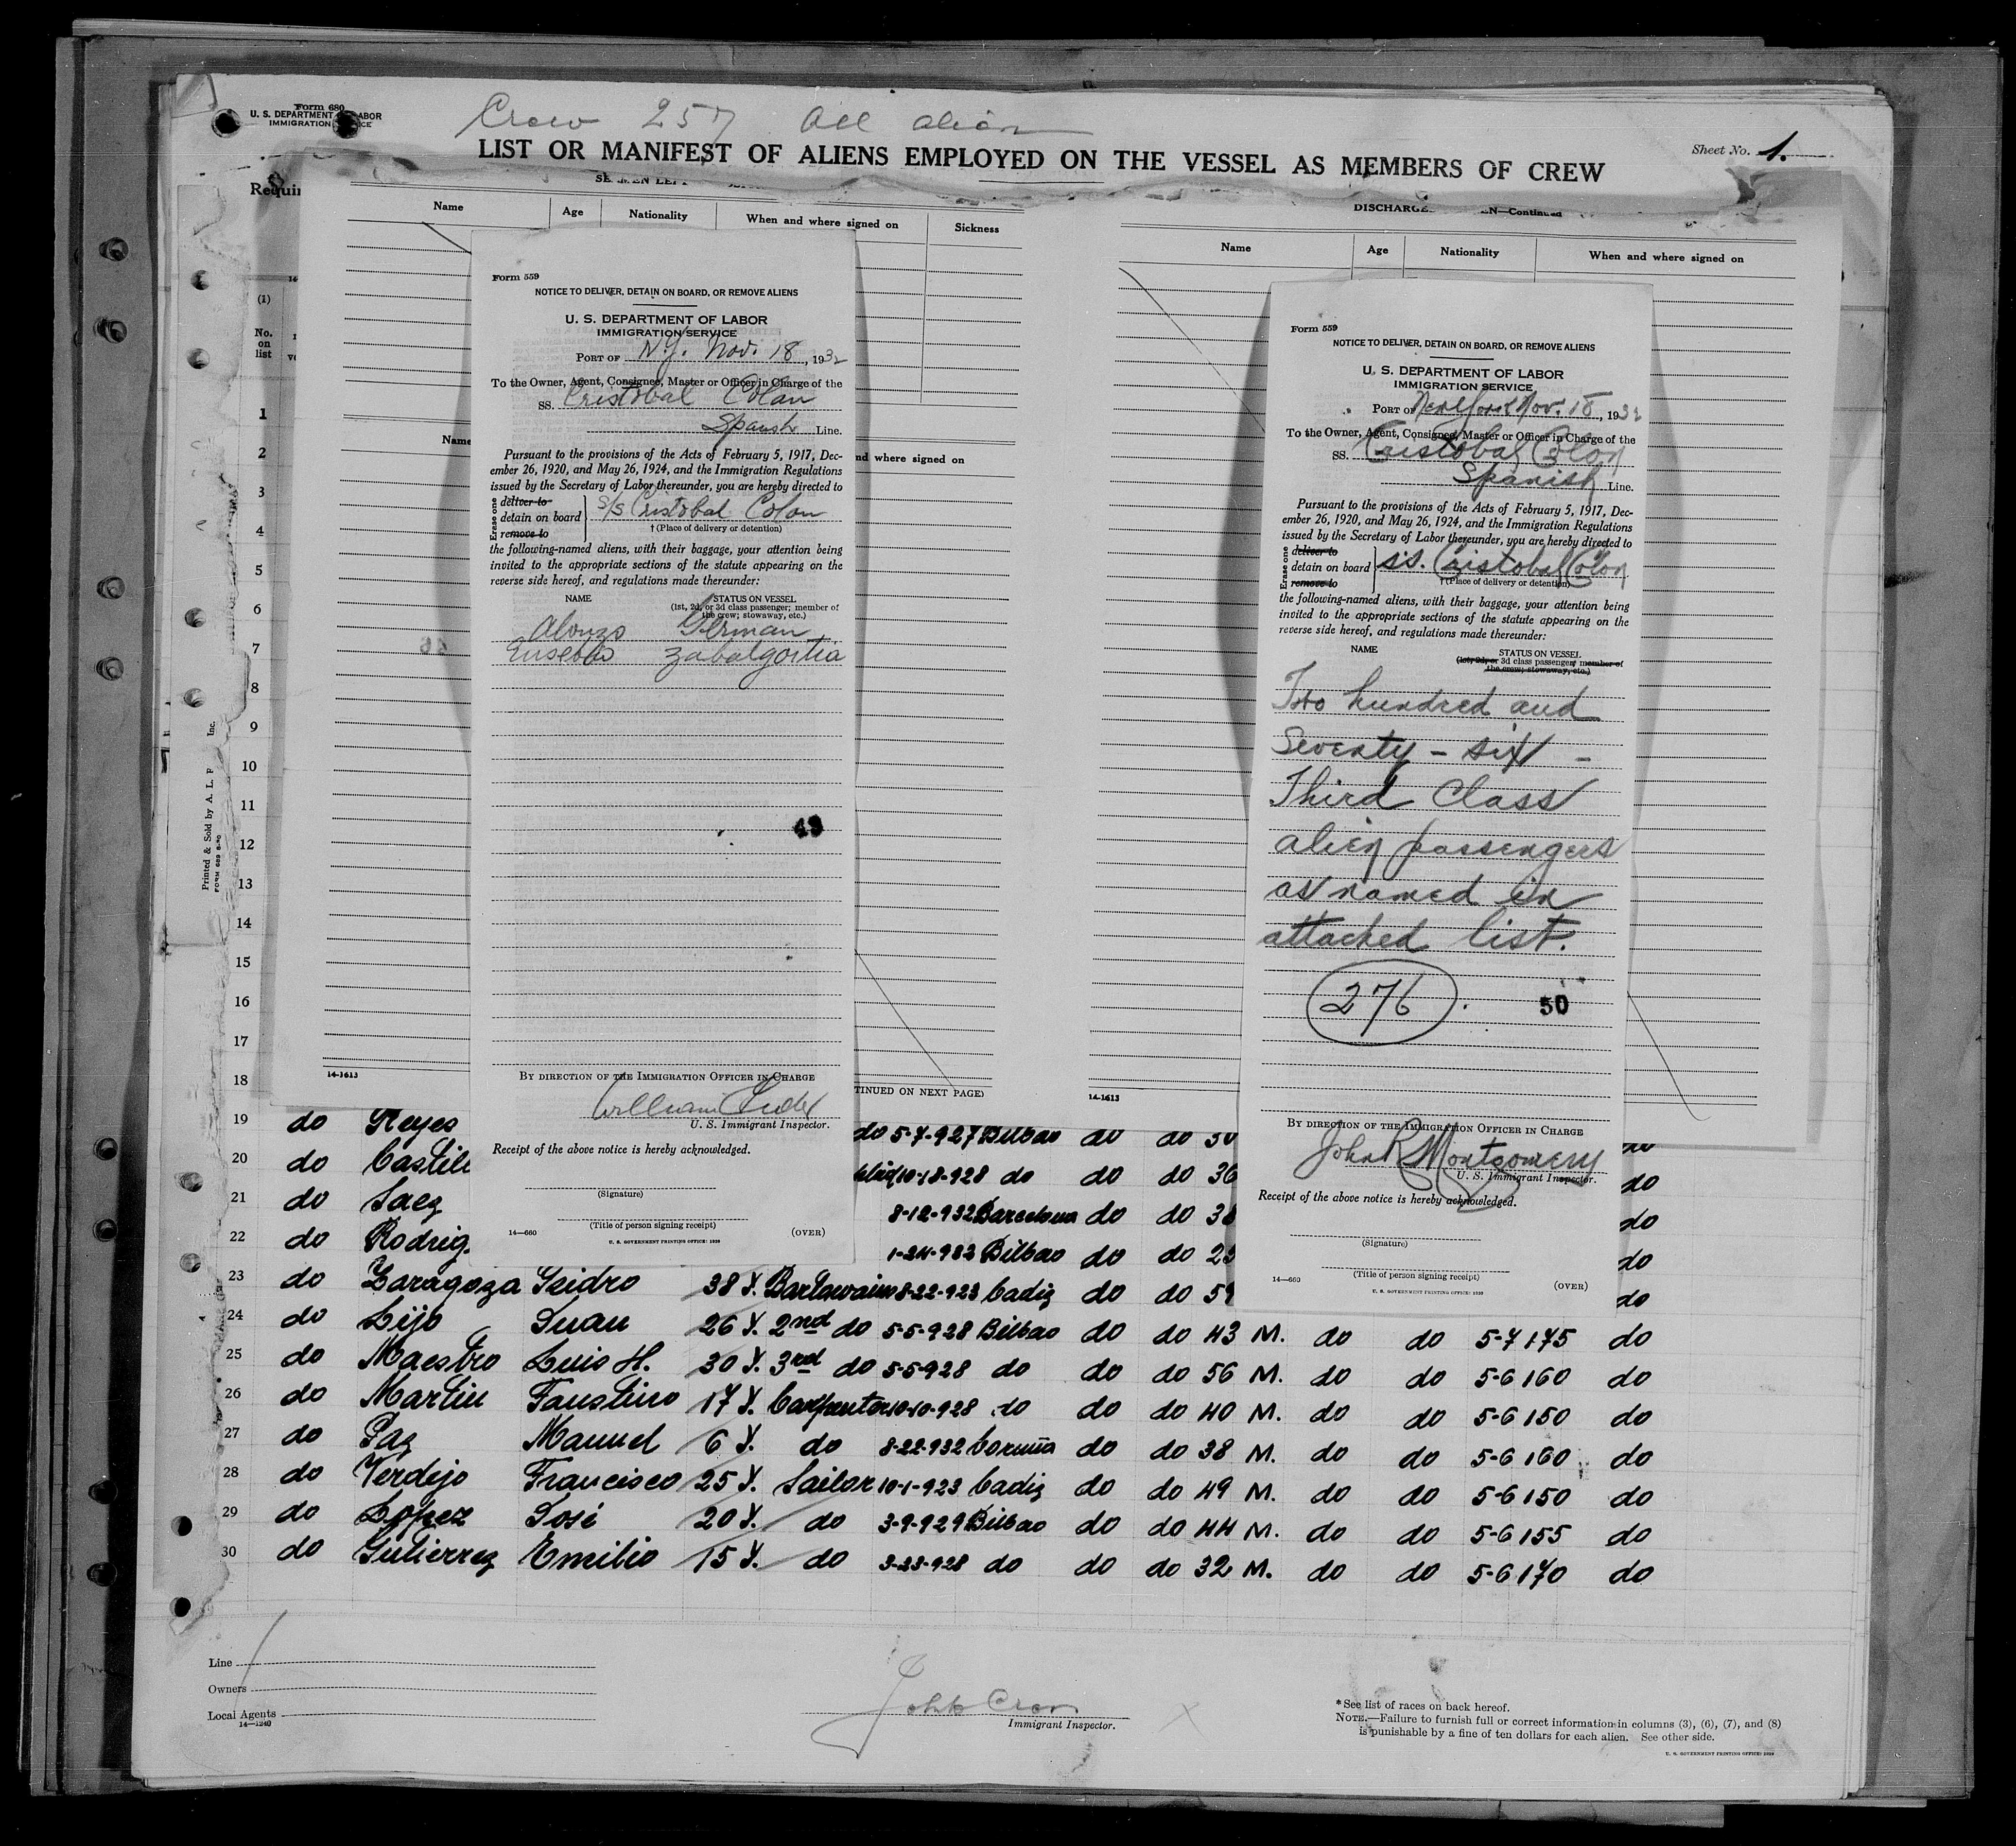 Form 680
U. S. DEPARTMENT LABOR
IMMIGRATION
Crew 257 all alien
LIST OR MANIFEST OF ALIENS EMPLOYED ON THE VESSEL AS MEMBERS OF CREW
Sheet No. 1.
Name Age Nationality When and where signed on Sickness
DISCHARGE —Continued
Name Age Nationality When and where signed on
(1)
No. on list
Name
nd where signed on
Form 559
NOTICE TO DELIVER, DETAIN ON BOARD, OR REMOVE ALIENS
U. S. DEPARTMENT OF LABOR
IMMIGRATION SERVICE
PORT OF N.Y. Nov. 18, 1932
To the Owner, Agent, Consignee, Master or Officer in Charge of the
SS. Cristobal Colon
Spanish Line.
Pursuant to the provisions of the Acts of February 5, 1917, Dec-
ember 26, 1920, and May 26, 1924, and the Immigration Regulations
issued by the Secretary of Labor thereunder, you are hereby directed to
Erase one
deliver to
detain on board S/S Cristobal Colon
remove to † (Place of delivery or detention)
the following-named aliens, with their baggage, your attention being
invited to the appropriate sections of the statute appearing on the
reverse side hereof, and regulations made thereunder:
NAME STATUS ON VESSEL
(1st, 2d, or 3d class passenger; member of
the crew; stowaway, etc.)
Alonzo German
Eusebio Zabalgoitia
49
BY DIRECTION OF THE IMMIGRATION OFFICER IN CHARGE
William
U. S. Immigrant Inspector.
Receipt of the above notice is hereby acknowledged.
(Signature)
(Title of person signing receipt)
14—660 U. S. GOVERNMENT PRINTING OFFICE: 1930 (OVER)
Form 559
NOTICE TO DELIVER, DETAIN ON BOARD, OR REMOVE ALIENS
U. S. DEPARTMENT OF LABOR
IMMIGRATION SERVICE
PORT OF New York Nov. 18, 1932
To the Owner, Agent, Consignee, Master or Officer in Charge of the
SS. Cristobal Colon
Spanish Line.
Pursuant to the provisions of the Acts of February 5, 1917, Dec-
ember 26, 1920, and May 26, 1924, and the Immigration Regulations
issued by the Secretary of Labor thereunder, you are hereby directed to
Erase one
deliver to
detain on board SS. Cristobal Colon
remove to † (Place of delivery or detention)
the following-named aliens, with their baggage, your attention being
invited to the appropriate sections of the statute appearing on the
reverse side hereof, and regulations made thereunder:
NAME STATUS ON VESSEL
(1st, 2d, or 3d class passenger; member of
the crew; stowaway, etc.)
Two hundred and
Seventy - six -
Third Class
alien passengers
as named in
attached list.
276.
50
BY DIRECTION OF THE IMMIGRATION OFFICER IN CHARGE
John R Montgomery
U. S. Immigrant Inspector.
Receipt of the above notice is hereby acknowledged.
(Signature)
(Title of person signing receipt)
14—660 U. S. GOVERNMENT PRINTING OFFICE: 1930 (OVER)
Printed & Sold by A. L. P Inc.
1
2
3
4
5
6
7
8
9
10
11
12
13
14
15
16
17
18
14-1613 TINUED ON NEXT PAGE) 14-1613
19 do Reyes do 5-7-927 Bilbao do do 50 do
20 do Castill 10-18-928 do do do 36 do
21 do Saez 8-12-932 Barcelona do do 38 do
22 do Rodrig. 1-24-932 Bilbao do do 25 do
23 do Zaragoza Isidro 38 Y. 8-22-923 Cadiz do do 59 do
24 do Lijo Juan 26 Y. 2nd do 5-5-928 Bilbao do do 43 M. do do 5-7 175 do
25 do Maestro Luis H. 30 Y. 3rd do 5-5-928 do do do 56 M. do do 5-6 160 do
26 do Martin Faustino 17 Y. Carpenter 10-10-928 do do do 40 M. do do 5-6 150 do
27 do Paz Manuel 6 Y. do 8-22-932 Coruña do do 38 M. do do 5-6 160 do
28 do Verdejo Francisco 25 Y. Sailor 10-1-923 Cadiz do do 49 M. do do 5-6 150 do
29 do Lopez José 20 Y. do 3-9-929 Bilbao do do 44 M. do do 5-6 155 do
30 do Gutierrez Emilio 15 Y. do 3-23-928 do do do 32 M. do do 5-6 170 do
Line
Owners
Local Agents
14-1240
John
Immigrant Inspector.
*See list of races on back hereof.
NOTE.—Failure to furnish full or correct information in columns (3), (6), (7), and (8)
is punishable by a fine of ten dollars for each alien. See other side.
U. S. GOVERNMENT PRINTING OFFICE: 1930